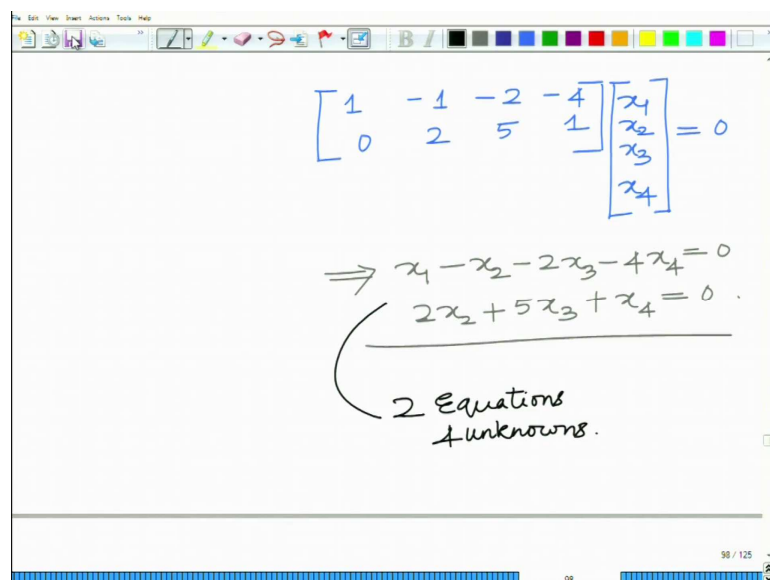 File Edit View Insert Actions Tools Help
B I
[1 -1 -2 -4] [x₁
0 2 5 1] x₂ = 0
x₃
x₄]
⇒ x₁ - x₂ - 2x₃ - 4x₄ = 0
2x₂ + 5x₃ + x₄ = 0 .
2 Equations
4 unknowns.
98 / 125
98